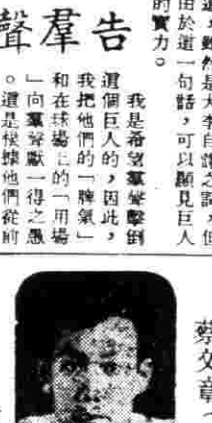 雖然是大李自謂之詞，但
由於這一句話，可以顯見巨人
的實力。
告羣聲
我是希望羣聲擊倒
這個巨人的，因此，
我把他們的「脾氣」
和在球場上的「用場
」向羣聲獻一得之愚
。這是根據他們從前
蔡文章